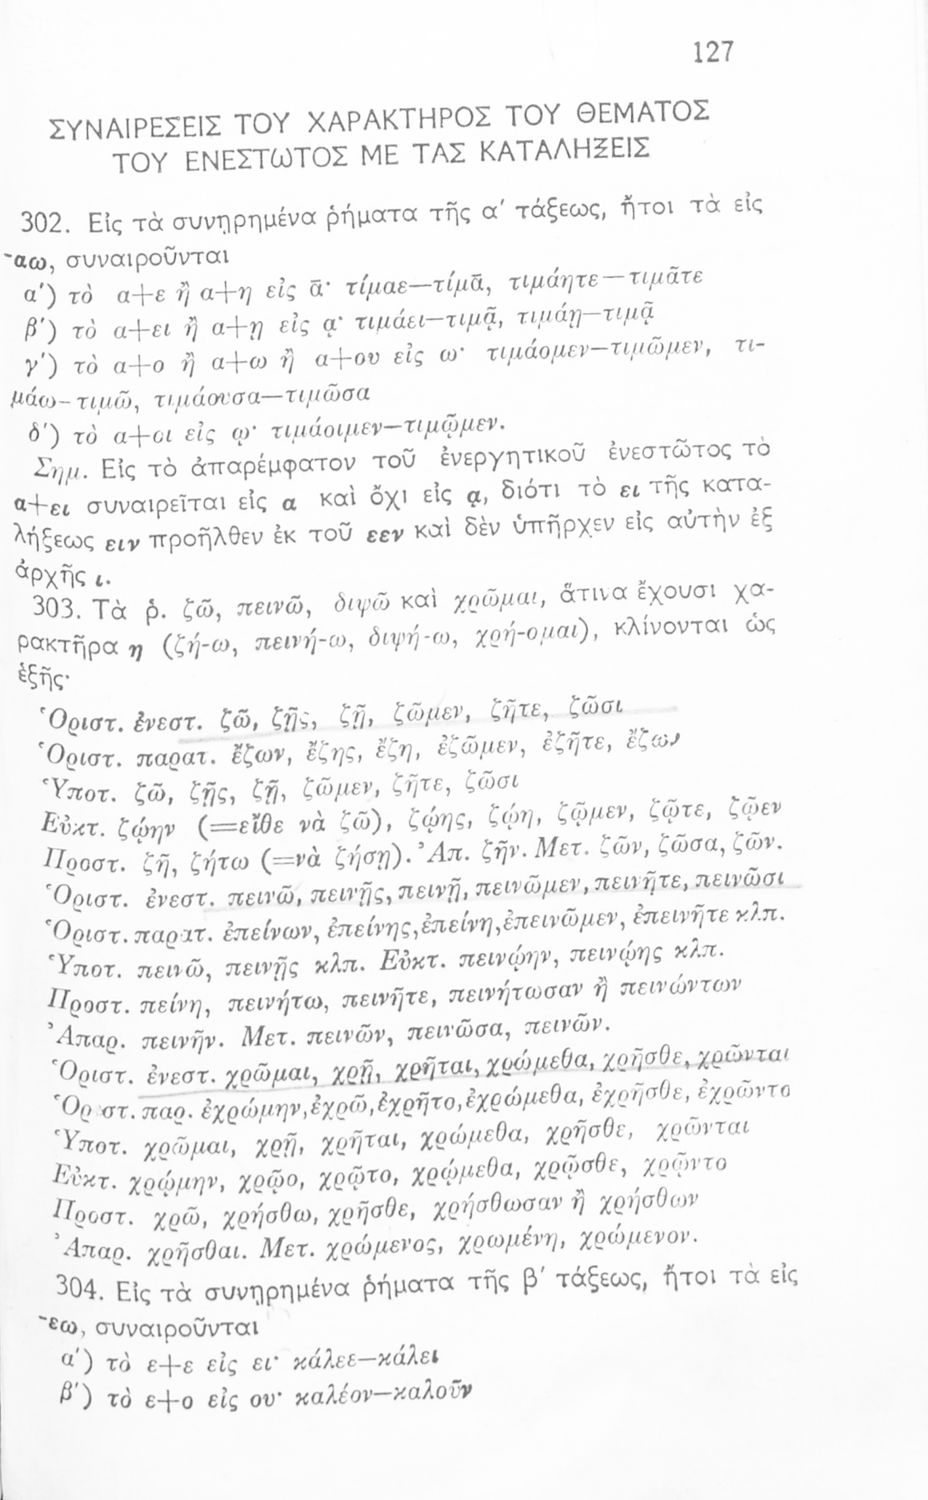 127
ΣΥΝΑΙΡΕΣΕΙΣ ΤΟΥ ΧΑΡΑΚΤΗΡΟΣ ΤΟΥ ΘΕΜΑΤΟΣ
ΤΟΥ ΕΝΕΣΤΩΤΟΣ ΜΕ ΤΑΣ ΚΑΤΑΛΗΞΕΙΣ
302. Εἰς τὰ συνῃρημένα ῥήματα τῆς α΄ τάξεως, ἤτοι τὰ εἰς
-αω, συναιροῦνται
α΄) τὸ α+ε ἢ α+η εἰς ᾱ· τίμαε—τίμᾱ, τιμάητε—τιμᾶτε
β΄) τὸ α+ει ἢ α+ῃ εἰς ᾳ· τιμάει—τιμᾷ, τιμάῃ—τιμᾷ
γ΄) τὸ α+ο ἢ α+ω ἢ α+ου εἰς ω· τιμάομεν—τιμῶμεν, τι-
μάω-τιμῶ, τιμάουσα—τιμῶσα
δ΄) τὸ α+οι εἰς ῳ· τιμάοιμεν—τιμῷμεν.
Σημ. Εἰς τὸ ἀπαρέμφατον τοῦ ἐνεργητικοῦ ἐνεστῶτος τὸ
α+ει συναιρεῖται εἰς α καὶ ὄχι εἰς ᾳ, διότι τὸ ει τῆς κατα-
λήξεως ειν προῆλθεν ἐκ τοῦ εεν καὶ δὲν ὑπῆρχεν εἰς αὐτὴν ἐξ
ἀρχῆς ι.
303. Τὰ ῥ. ζῶ, πεινῶ, διψῶ καὶ χρῶμαι, ἅτινα ἔχουσι χα-
ρακτῆρα η (ζή-ω, πεινή-ω, διψή-ω, χρή-ομαι), κλίνονται ὡς
ἑξῆς·
Ὁριστ. ἐνεστ. ζῶ, ζῇς, ζῇ, ζῶμεν, ζῆτε, ζῶσι
Ὁριστ. παρατ. ἔζων, ἔζης, ἔζη, ἐζῶμεν, ἐζῆτε, ἔζων
Ὑποτ. ζῶ, ζῇς, ζῇ, ζῶμεν, ζῆτε, ζῶσι
Εὐκτ. ζῴην (=εἴθε νὰ ζῶ), ζῴης, ζῴη, ζῷμεν, ζῷτε, ζῷεν
Προστ. ζῆ, ζήτω (=νὰ ζήσῃ). Ἀπ. ζῆν. Μετ. ζῶν, ζῶσα, ζῶν.
Ὁριστ. ἐνεστ. πεινῶ, πεινῇς, πεινῇ, πεινῶμεν, πεινῆτε, πεινῶσι
Ὁριστ. παρατ. ἐπείνων, ἐπείνης, ἐπείνη, ἐπεινῶμεν, ἐπεινῆτε κλπ.
Ὑποτ. πεινῶ, πεινῇς κλπ. Εὐκτ. πεινῴην, πεινῴης κλπ.
Προστ. πείνη, πεινήτω, πεινῆτε, πεινήτωσαν ἢ πεινώντων
Ἀπαρ. πεινῆν. Μετ. πεινῶν, πεινῶσα, πεινῶν.
Ὁριστ. ἐνεστ. χρῶμαι, χρῇ, χρῆται, χρώμεθα, χρῆσθε, χρῶνται
Ὁριστ. παρ. ἐχρώμην, ἐχρῶ, ἐχρῆτο, ἐχρώμεθα, ἐχρῆσθε, ἐχρῶντο
Ὑποτ. χρῶμαι, χρῇ, χρῆται, χρώμεθα, χρῆσθε, χρῶνται
Εὐκτ. χρῴμην, χρῷο, χρῷτο, χρῴμεθα, χρῷσθε, χρῷντο
Προστ. χρῶ, χρήσθω, χρῆσθε, χρήσθωσαν ἢ χρήσθων
Ἀπαρ. χρῆσθαι. Μετ. χρώμενος, χρωμένη, χρώμενον.
304. Εἰς τὰ συνῃρημένα ῥήματα τῆς β΄ τάξεως, ἤτοι τὰ εἰς
-εω, συναιροῦνται
α΄) τὸ ε+ε εἰς ει· κάλεε—κάλει
β΄) τὸ ε+ο εἰς ου· καλέον—καλοῦν